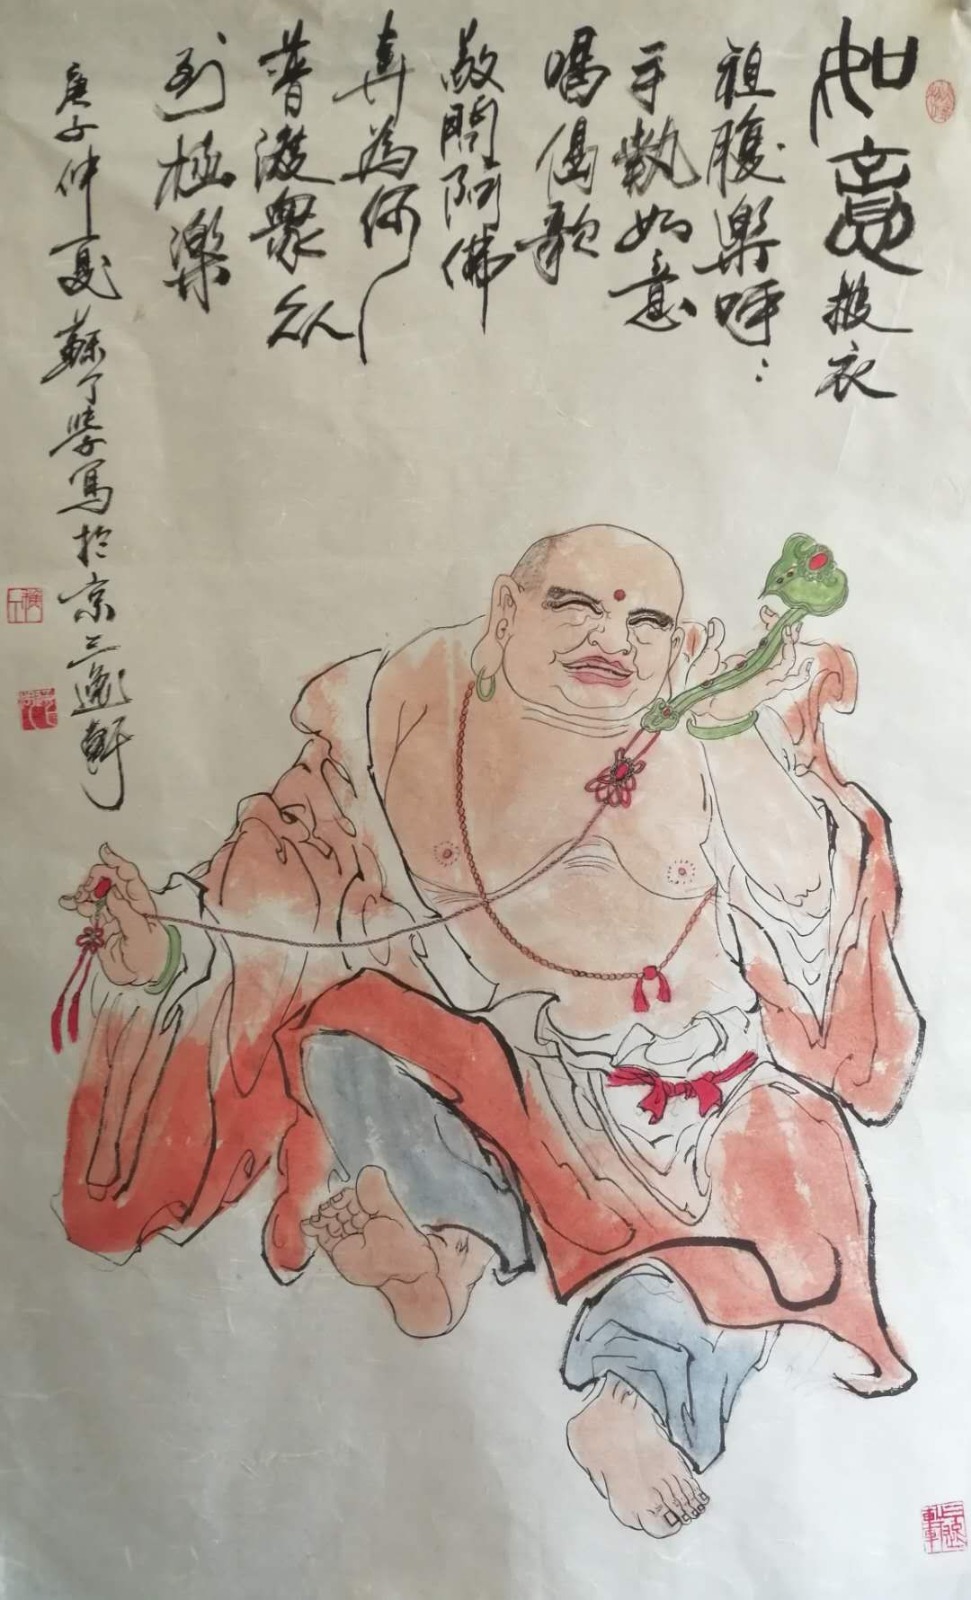 如意 披衣
袒腹樂呼：
手執如意
喝偈歌
敢問阿佛
喜為何
普渡衆
到極樂
庚子仲夏 蘇了學寫於京三逸軒